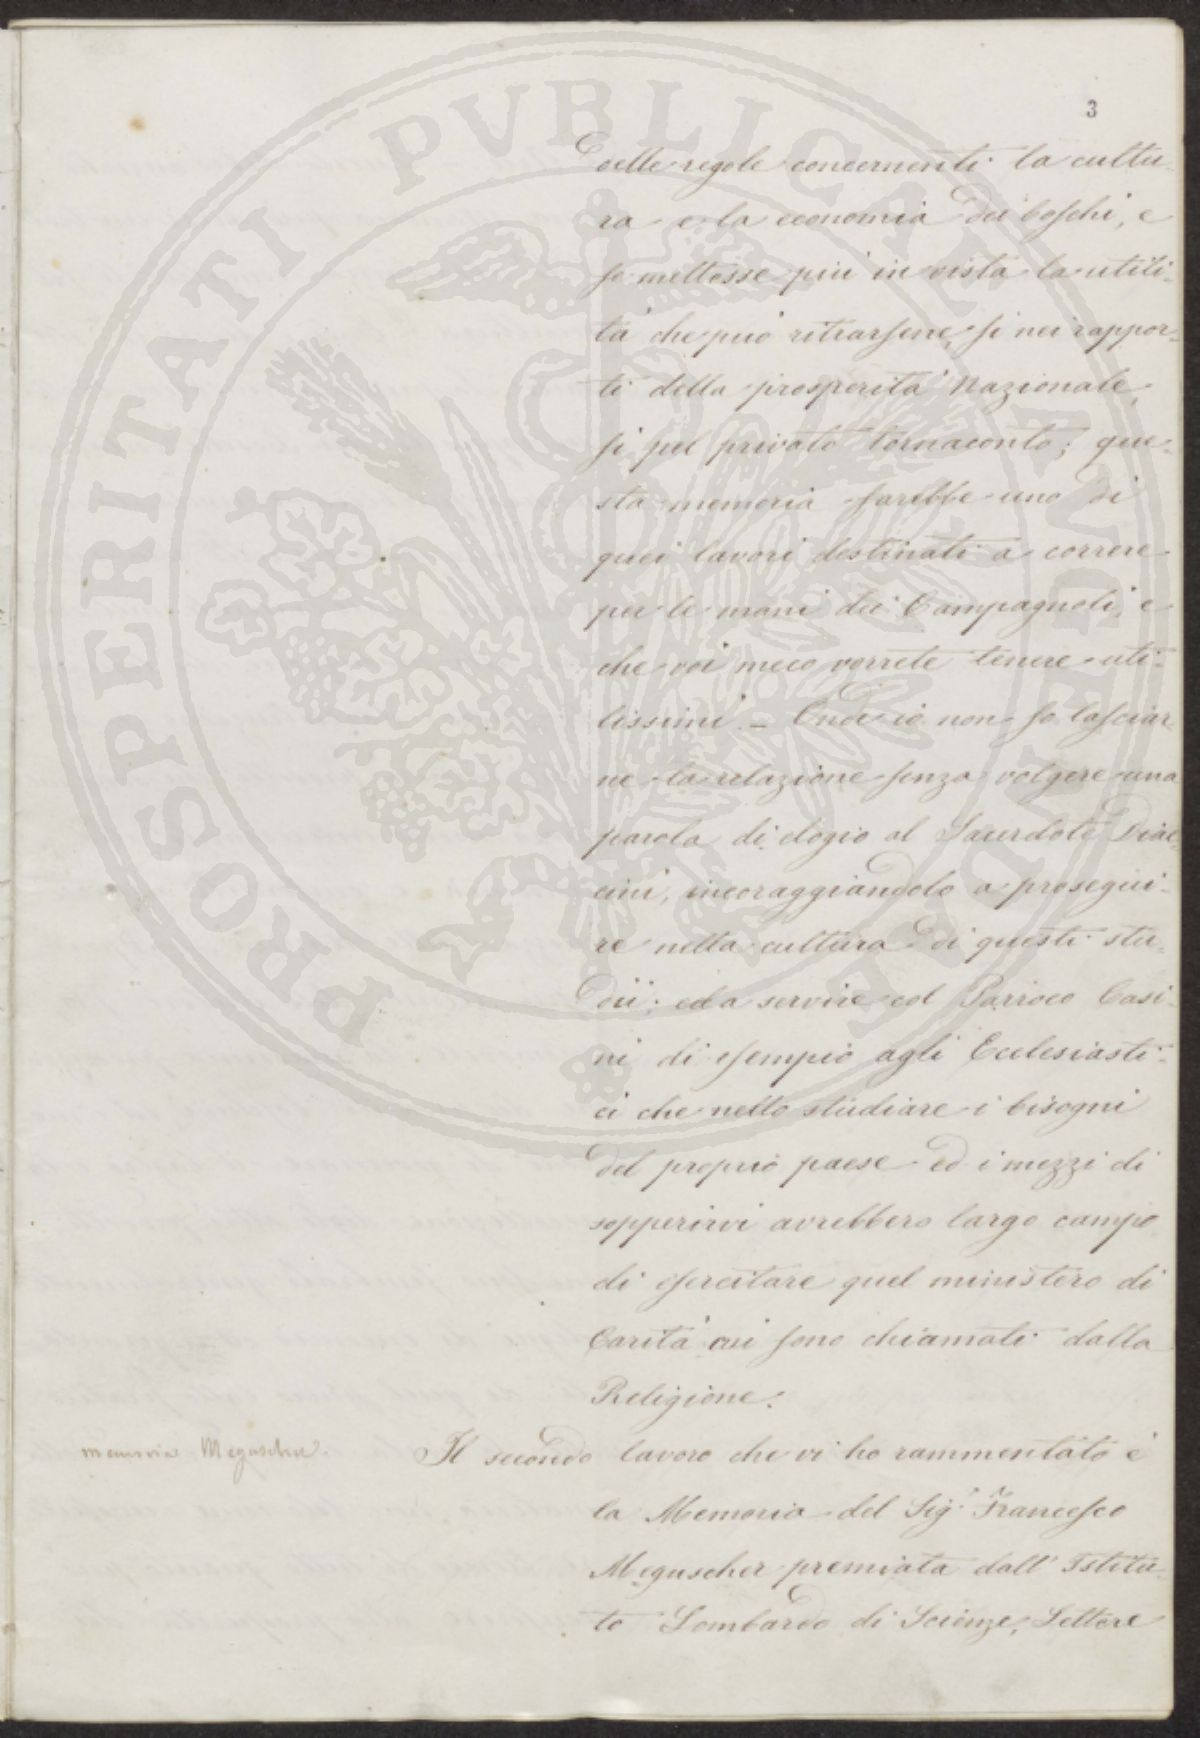 3
delle regole concernenti la cultu-
ra e la economia dei boschi, e
se mettesse più in vista la utili-
tà che può ritrarsene, si nei rappor-
ti della prosperità Nazionale,
si pel privato tornaconto; que-
sta memoria sarebbe uno di
quei lavori destinati a correre
per le mani dei Campagnoli, e
che voi meco vorrete tenere uti-
lissimi. – Ond'io non so lasciar
ne la relazione senza volgere una
parola di elogio al Sacerdote Diac-
cini, incoraggiandolo a prosegui-
re nella cultura di questi stu-
dii; ed a servire col Parroco Casi-
ni di esempio agli Ecclesiasti-
ci che nello studiare i bisogni
del proprio paese ed i mezzi di
sopperirvi avrebbero largo campo
di esercitare quel ministero di
Carità cui sono chiamati dalla
Religione.
memoria Meguscher.
Il secondo lavoro che vi ho rammentato è
la Memoria del Sig.r Francesco
Meguscher premiata dall'Istitu-
to Lombardo di Scienze, Lettere
PROSPERITATI PVBLICAE AVGENDAE